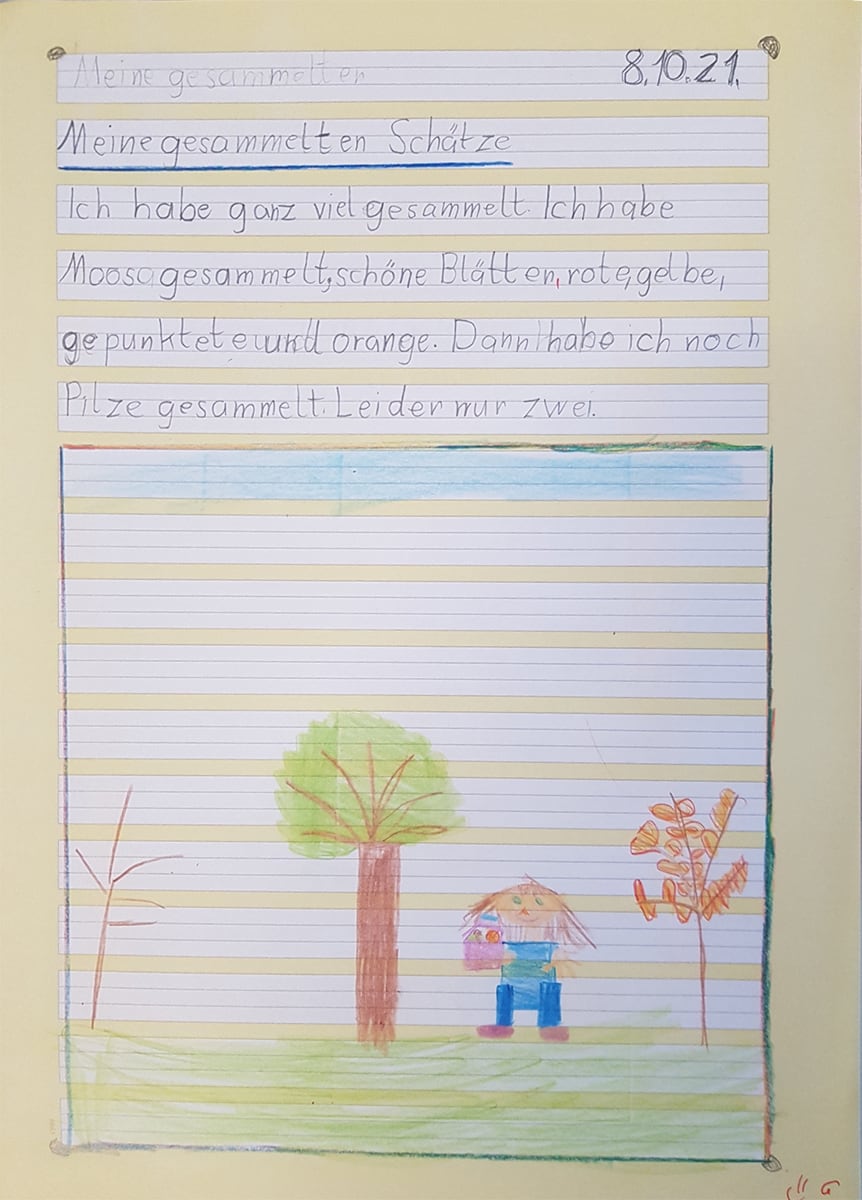 Meine gesammelten 8.10.21.
Meine gesammelten Schätze
Ich habe ganz viel gesammelt. Ich habe
Moose gesammelt, schöne Blätter, rote, gelbe,
gepunktete und orange. Dann habe ich noch
Pilze gesammelt. Leider nur zwei.